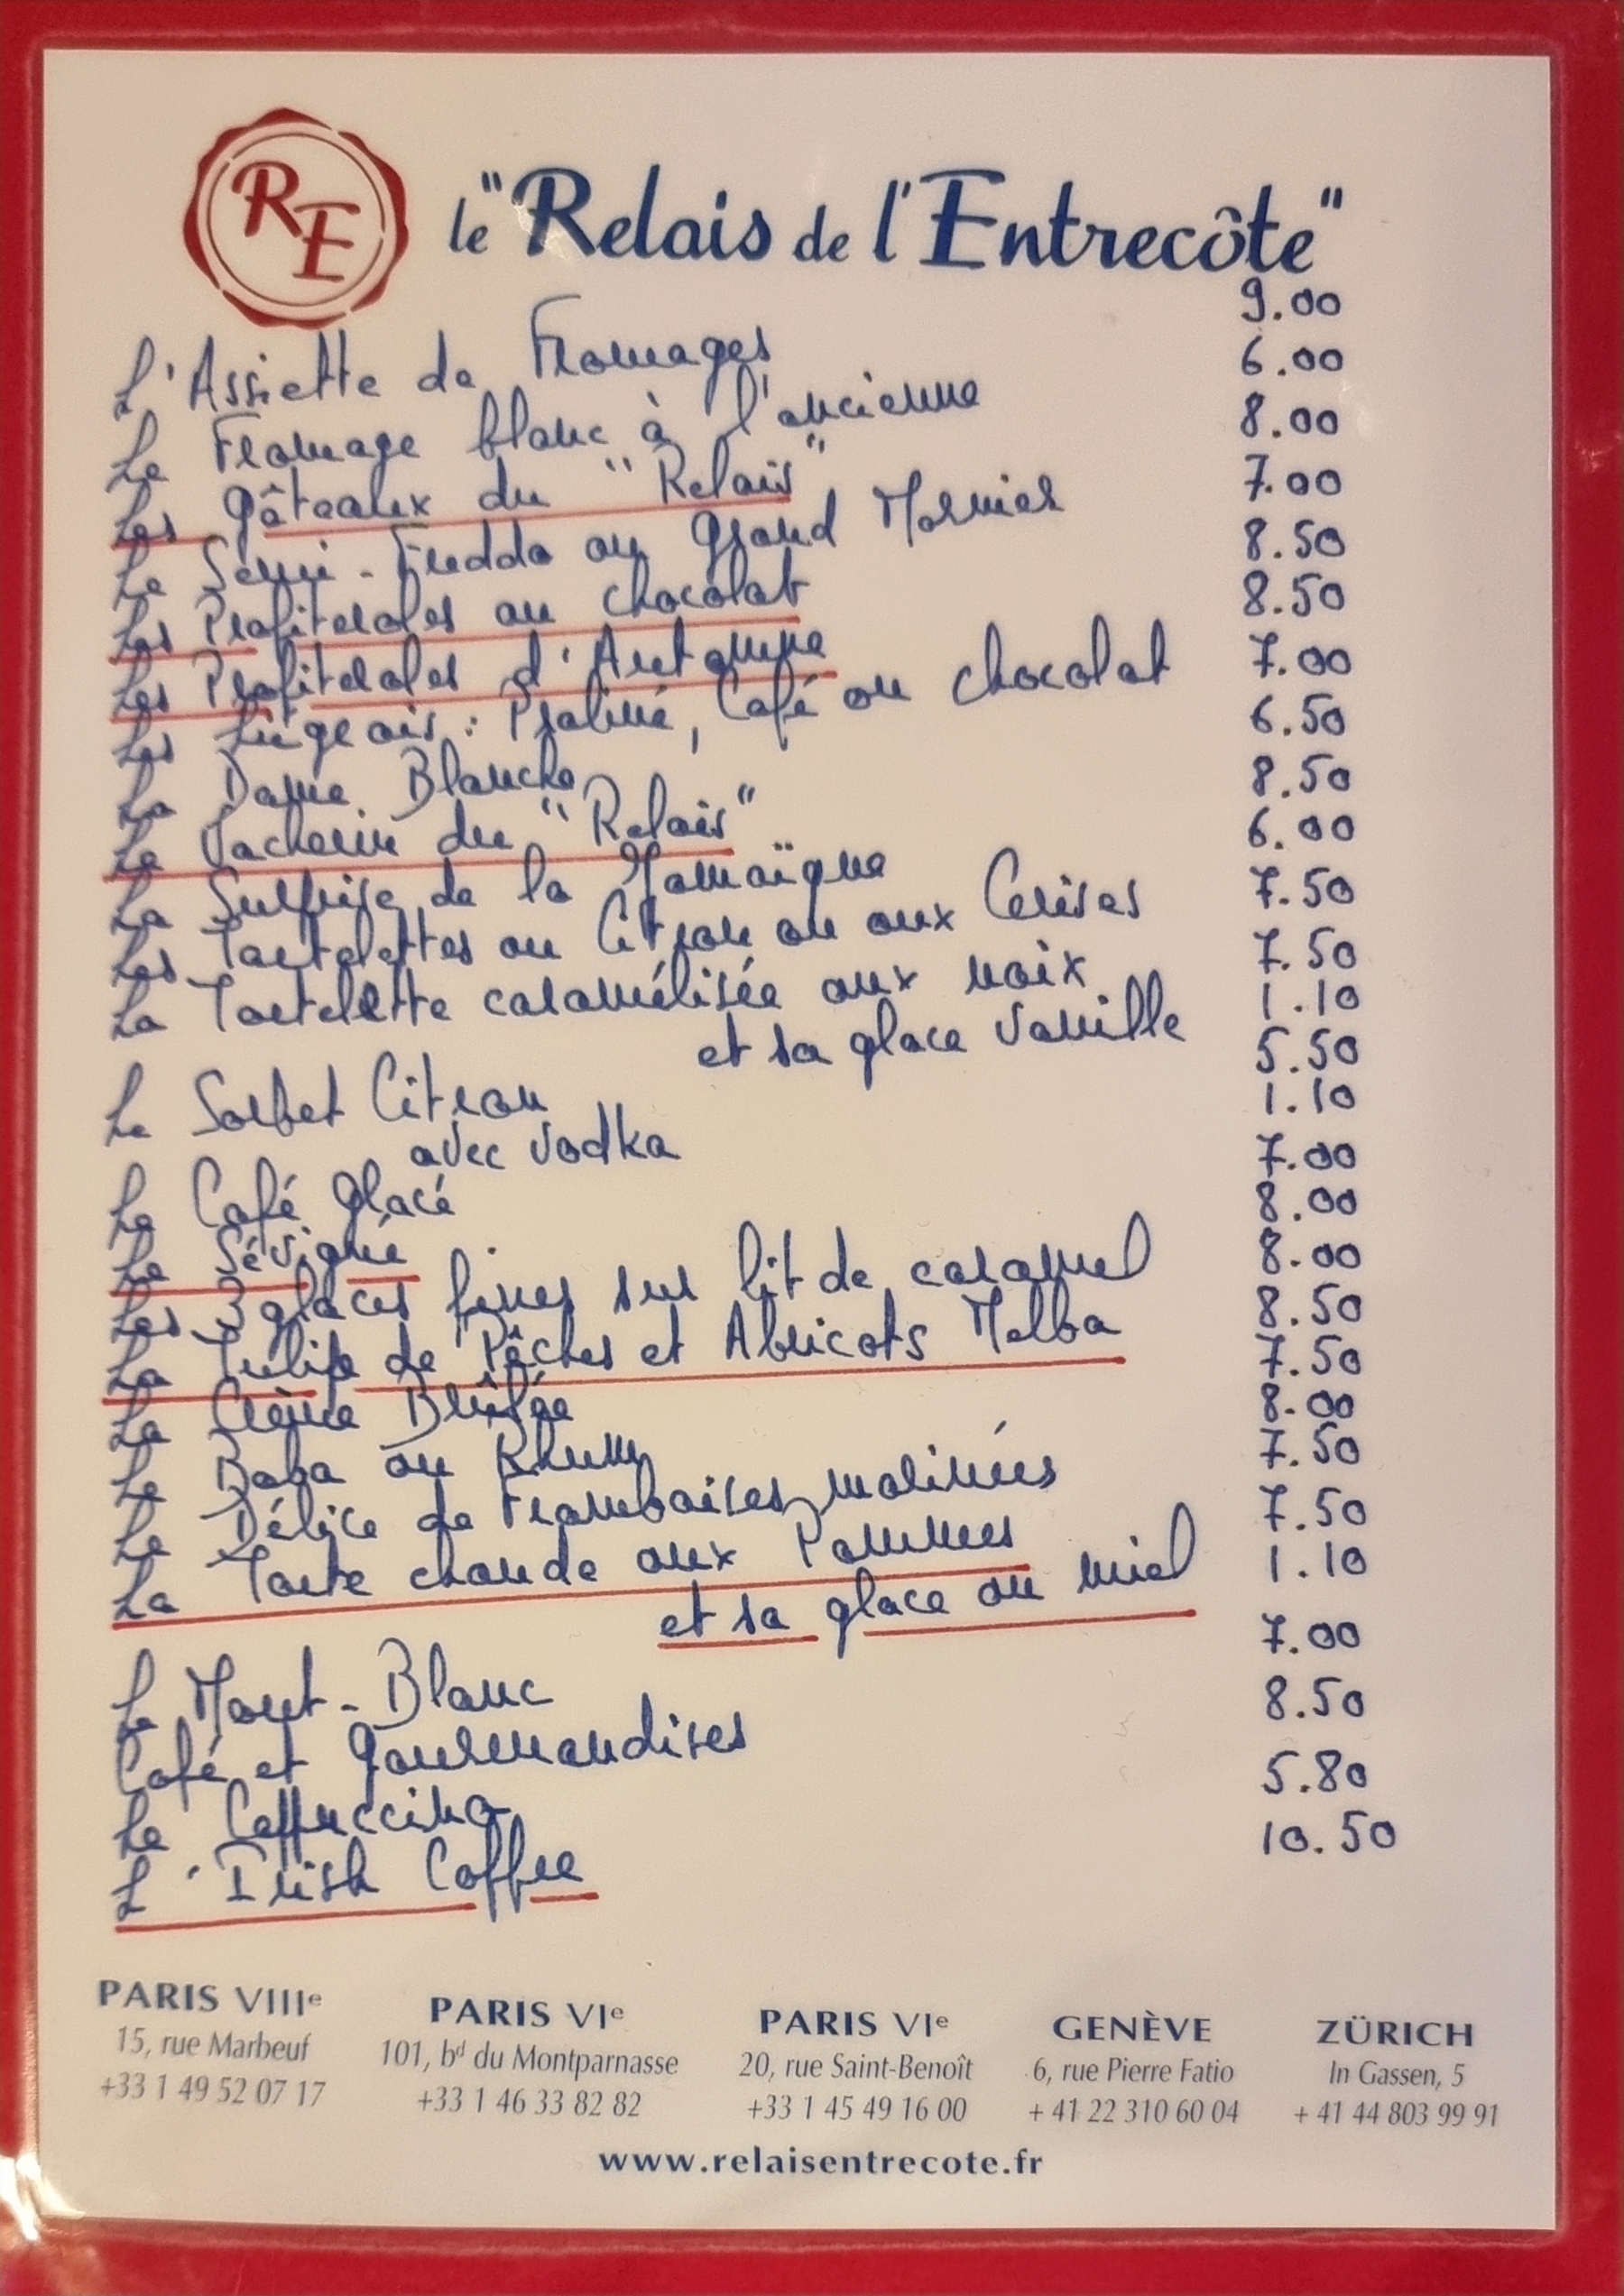 RE
le "Relais de l'Entrecôte"
L'Assiette de Fromages 9.00
Le Fromage blanc à l'ancienne 6.00
Les Gâteaux du "Relais" 8.00
Le Semi-Freddo au Grand Marnier 7.00
Les Profiteroles au chocolat 8.50
Les Profiteroles d'Automne 8.50
Les Liégeois : Praliné, Café ou chocolat 7.00
La Dame Blanche 6.50
Le Vacherin du "Relais" 8.50
La Surprise de la Jamaïque 6.00
Les Tartelettes au Citron ou aux Cerises 7.50
La Tartelette caramélisée aux noix 7.50
et sa glace vanille 1.10
Le Sorbet Citron 5.50
avec vodka 1.10
Le Café glacé 7.00
Le Sévigné 8.00
Les 3 glaces fines sur lit de caramel 8.00
La Tulipe de Pêches et Abricots Melba 8.50
La Crème Brûlée 7.50
Le Baba au Rhum 8.00
Le Délice de Framboises marinées 7.50
La Tarte chaude aux Pommes 7.50
et sa glace au miel 1.10
Le Mont-Blanc 7.00
Café et Gourmandises 8.50
Le Cappuccino 5.80
L'Irish Coffee 10.50
PARIS VIIIe
15, rue Marbeuf
+33 1 49 52 07 17
PARIS VIe
101, bd du Montparnasse
+33 1 46 33 82 82
PARIS VIe
20, rue Saint-Benoît
+33 1 45 49 16 00
GENÈVE
6, rue Pierre Fatio
+ 41 22 310 60 04
ZÜRICH
In Gassen, 5
+ 41 44 803 99 91
www.relaisentrecote.fr